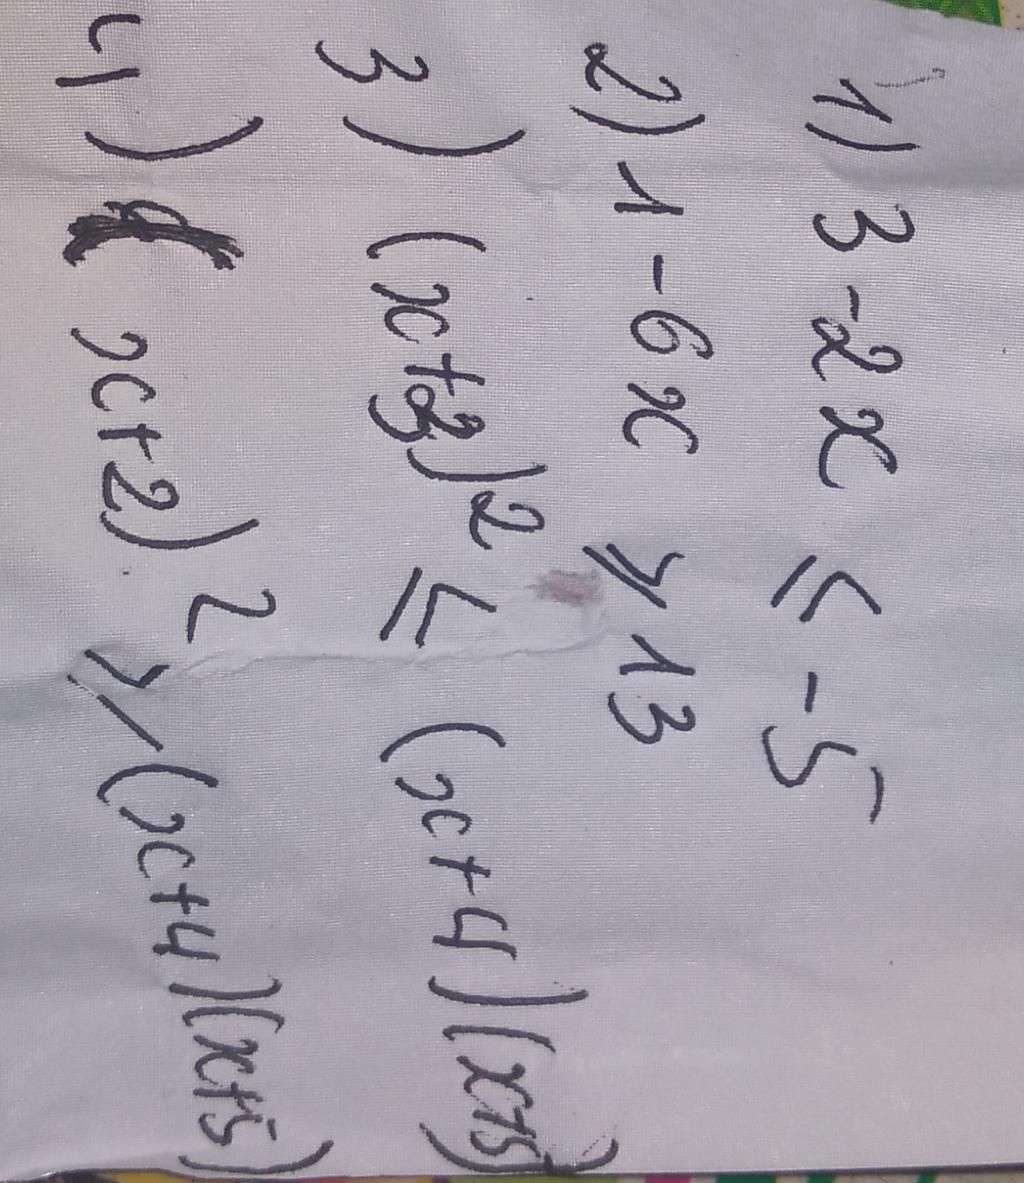 1) 3-2x ≤ -5
2) 1-6x ≥ 13
3) (x+3)² ≤ (x+4)(x+5)
4) (x+2)² ≥ (x+4)(x+5)